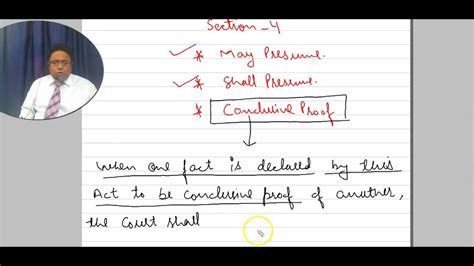 Section-4
* May Presume.
* Shall Presume.
* Conclusive Proof
When one fact is declared by this
Act to be conclusive proof of another,
the Court shall